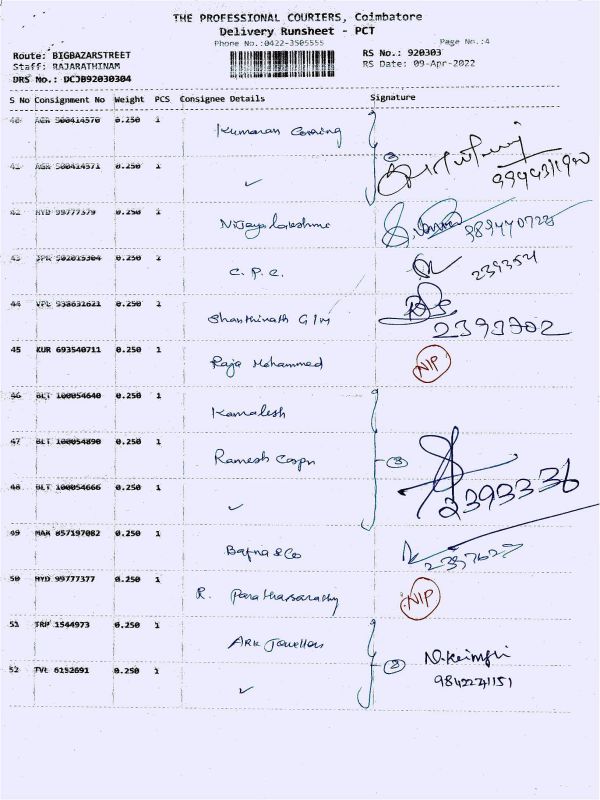 THE PROFESSIONAL COURIERS, Coimbatore
Delivery Runsheet - PCT
Phone No.:0422-3505555 Page No.:4
Route: BIGBAZARSTREET RS No.: 920303
Staff: RAJARATHINAM RS Date: 09-Apr-2022
DRS No.: DCJB92030304
S No Consignment No Weight PCS Consignee Details Signature
40 AGR 500414570 0.250 1 Kumaran Covering
41 AGR 500414571 0.250 1 ✓ 2 9944311920
42 HYD 99777379 0.250 1 Vijayalakshmi 9894407225
43 JPR 0.250 1 C.P.C. 239354
44 VPL 938632621 0.250 1 Shanthinath G/M 2393702
45 KUR 693540711 0.250 1 Raja Mohammed NIP
46 BLT 100054640 0.250 1 Kamalesh
47 BLT 100054890 0.250 1 Ramesh Corpn 3
48 BLT 100054666 0.250 1 ✓ 2393336
49 MAR 857197082 0.250 1 Bafna & Co
50 HYD 99777377 0.250 1 R. Parathasarathy NIP
51 TRP 1544973 0.250 1 ARK Jewellers
52 TVL 6152691 0.250 1 ✓ 2 9842241151